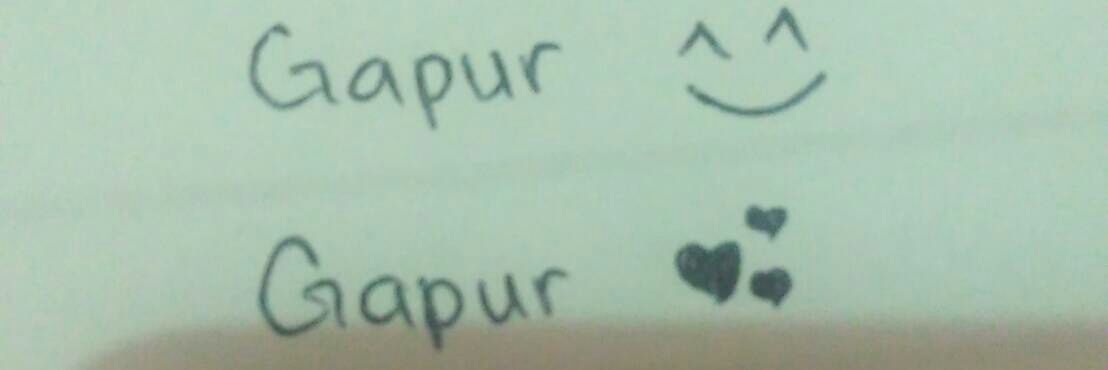 Gapur
Gapur